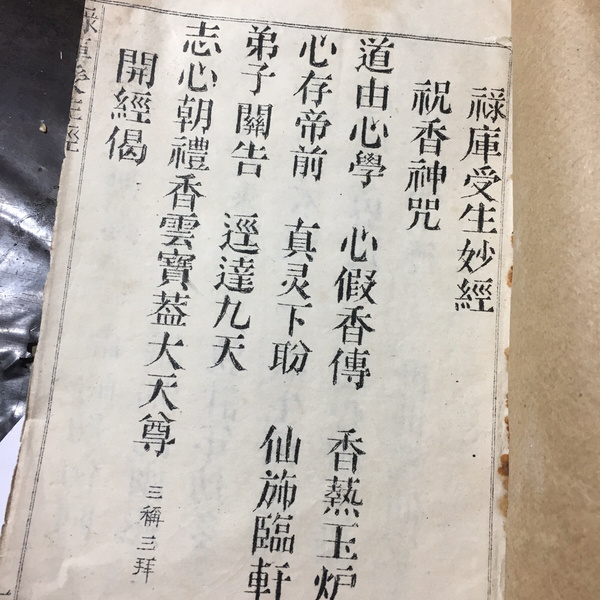 禄庫受生妙經
祝香神咒
道由心學 心假香傳 香熱玉炉
心存帝前 真灵下盼 仙斾臨軒
弟子關告 逕達九天
志心朝禮香雲寶蓋大天尊 三稱三拜
開經偈